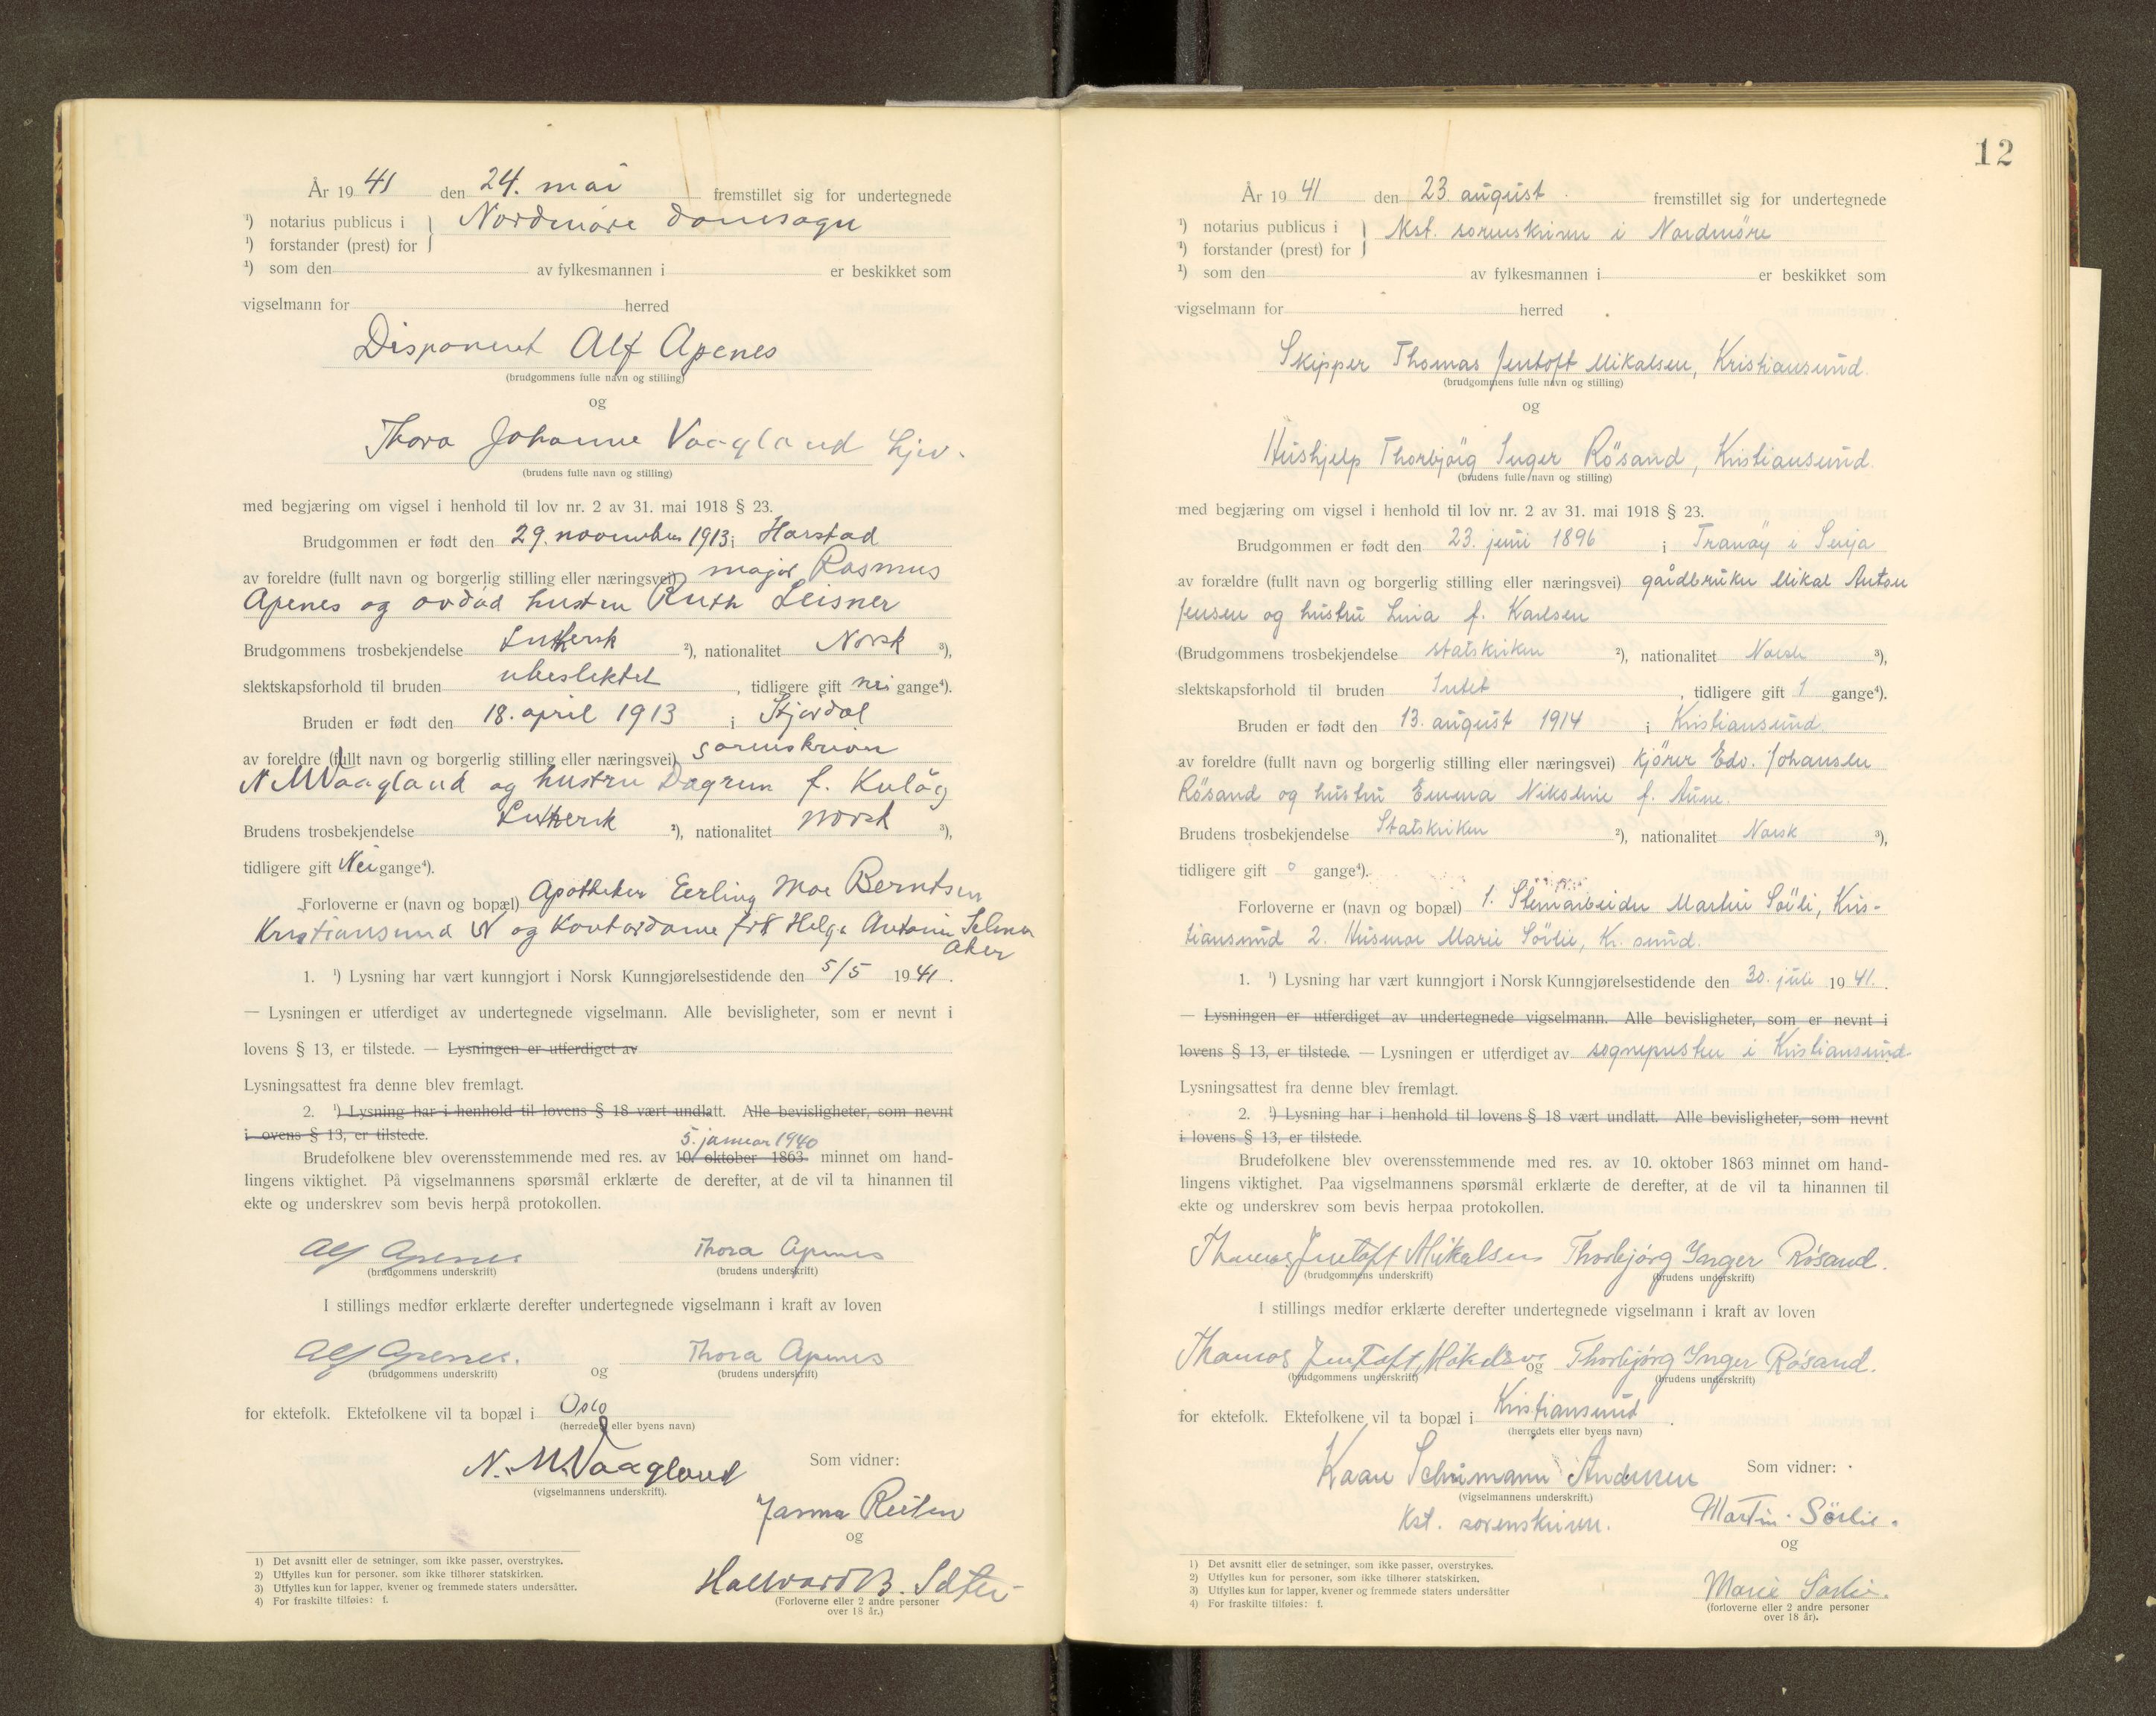 År 1941 den 24. mai fremstillet sig for undertegnede
¹) notarius publicus i } Nordmøre domssogn
¹) forstander (prest) for
¹) som den av fylkesmannen i er beskikket som
vigselmann for herred
Disponent Alf Apenes
(brudgommens fulle navn og stilling)
og
Thora Johanne Vaagland
(brudens fulle navn og stilling)
med begjæring om vigsel i henhold til lov nr. 2 av 31. mai 1918 § 23.
Brudgommen er født den 29. november 1913 i Harstad
av foreldre (fullt navn og borgerlig stilling eller næringsvei) major Rasmus
Apenes og avdød hustru Ruth Leisner
Brudgommens trosbekjendelse Luthersk ²), nationalitet Norsk ³),
slektskapsforhold til bruden ubeslektet, tidligere gift nei gange⁴).
Bruden er født den 18. april 1913 i Stjørdal
av foreldre (fullt navn og borgerlig stilling eller næringsvei) sorenskriver
N M Vaagland og hustru Dagrun f.
Brudens trosbekjendelse Luthersk ²), nationalitet norsk ³),
tidligere gift Nei gange⁴).
Forloverne er (navn og bopæl) Apotheker Eerling Moe Berntsen
Kristiansund N og Kontordame frk Helga Antonie Selmer
Aker
1. ¹) Lysning har vært kunngjort i Norsk Kunngjørelsestidende den 5/5 1941.
— Lysningen er utferdiget av undertegnede vigselmann. Alle bevisligheter, som er nevnt i
lovens § 13, er tilstede. — Lysningen er utferdiget av
Lysningsattest fra denne blev fremlagt.
2. ¹) Lysning har i henhold til lovens § 18 vært undlatt. Alle bevisligheter, som nevnt
i lovens § 13, er tilstede.
5. januar 1940
Brudefolkene blev overensstemmende med res. av 10. oktober 1863 minnet om hand-
lingens viktighet. På vigselmannens spørsmål erklærte de derefter, at de vil ta hinannen til
ekte og underskrev som bevis herpå protokollen.
Alf Apenes Thora Apenes
(brudgommens underskrift) (brudens underskrift)
I stillings medfør erklærte derefter undertegnede vigselmann i kraft av loven
Alf Apenes. og Thora Apenes
(brudgommens underskrift) (brudens underskrift)
for ektefolk. Ektefolkene vil ta bopæl i Oslo
(herredets eller byens navn)
N. M. Vaagland Som vidner:
(vigselmannens underskrift).
Reiten
og
Hallvard B.
(Forloverne eller 2 andre personer
over 18 år.)
1) Det avsnitt eller de setninger, som ikke passer, overstrykes.
2) Utfylles kun for personer, som ikke tilhører statskirken.
3) Utfylles kun for lapper, kvener og fremmede staters undersåtter.
4) For fraskilte tilføies: f.
12
År 1941 den 23. august fremstillet sig for undertegnede
¹) notarius publicus i } Kst. sorenskriver i Nordmöre
¹) forstander (prest) for
¹) som den av fylkesmannen i er beskikket som
vigselmann for herred
Skipper Thomas Jentoft Mikalsen, Kristiansund.
(brudgommens fulle navn og stilling)
og
Hushjelp Thorbjörg Inger Rösand, Kristiansund.
(brudens fulle navn og stilling)
med begjæring om vigsel i henhold til lov nr. 2 av 31. mai 1918 § 23.
Brudgommen er født den 23. juni 1896 i Tranöy i Senja
av forældre (fullt navn og borgerlig stilling eller næringsvei) gårdbruker Mikal Anton
Jensen og hustru Lina f. Karlsen
(Brudgommens trosbekjendelse statskirken ²), nationalitet Norsk ³),
slektskapsforhold til bruden Intet, tidligere gift 1 gange⁴).
Bruden er født den 13. august 1914 i Kristiansund.
av foreldre (fullt navn og borgerlig stilling eller næringsvei) kjörer Edv. Johansen
Rösand og hustru Emma Nikoline f. Aune.
Brudens trosbekjendelse Statskirken ²), nationalitet Norsk ³),
tidligere gift 0 gange⁴).
Forloverne er (navn og bopæl) 1. Stenarbeider Martin Sörli, Kris-
tiansund 2. Husmor Marie Sörlie, Kr. sund.
1. ¹) Lysning har vært kunngjort i Norsk Kunngjørelsestidende den 30. juli 1941.
— Lysningen er utferdiget av undertegnede vigselmann. Alle bevisligheter, som er nevnt i
lovens § 13, er tilstede. — Lysningen er utferdiget av sognepresten i Kristiansund
Lysningsattest fra denne blev fremlagt.
2. ¹) Lysning har i henhold til lovens § 18 vært undlatt. Alle bevisligheter, som nevnt
i lovens § 13, er tilstede.
Brudefolkene blev overensstemmende med res. av 10. oktober 1863 minnet om hand-
lingens viktighet. Paa vigselmannens spørsmål erklærte de derefter, at de vil ta hinannen til
ekte og underskrev som bevis herpaa protokollen.
Thomas Jentoft Mikalsen Thorbjørg Inger Røsand.
(brudgommens underskrift) (brudens underskrift)
I stillings medfør erklærte derefter undertegnede vigselmann i kraft av loven
Thomas Jentoft Mikalsen og Thorbjørg Inger Røsand.
(brudgommens underskrift) (brudens underskrift)
for ektefolk. Ektefolkene vil ta bopæl i Kristiansund.
(herredets eller byens navn)
Kaare Schumann Andersen Som vidner:
(vigselmannens underskrift.)
Kst. sorenskriver. Martin Sörlie.
og
Marie Sørlie.
(forloverne eller 2 andre personer
over 18 år).
1) Det avsnitt eller de setninger, som ikke passer, overstrykes.
2) Utfylles kun for personer, som ikke tilhører statskirken.
3) Utfylles kun for lapper, kvener og fremmede staters undersåtter
4) For fraskilte tilføies: f.